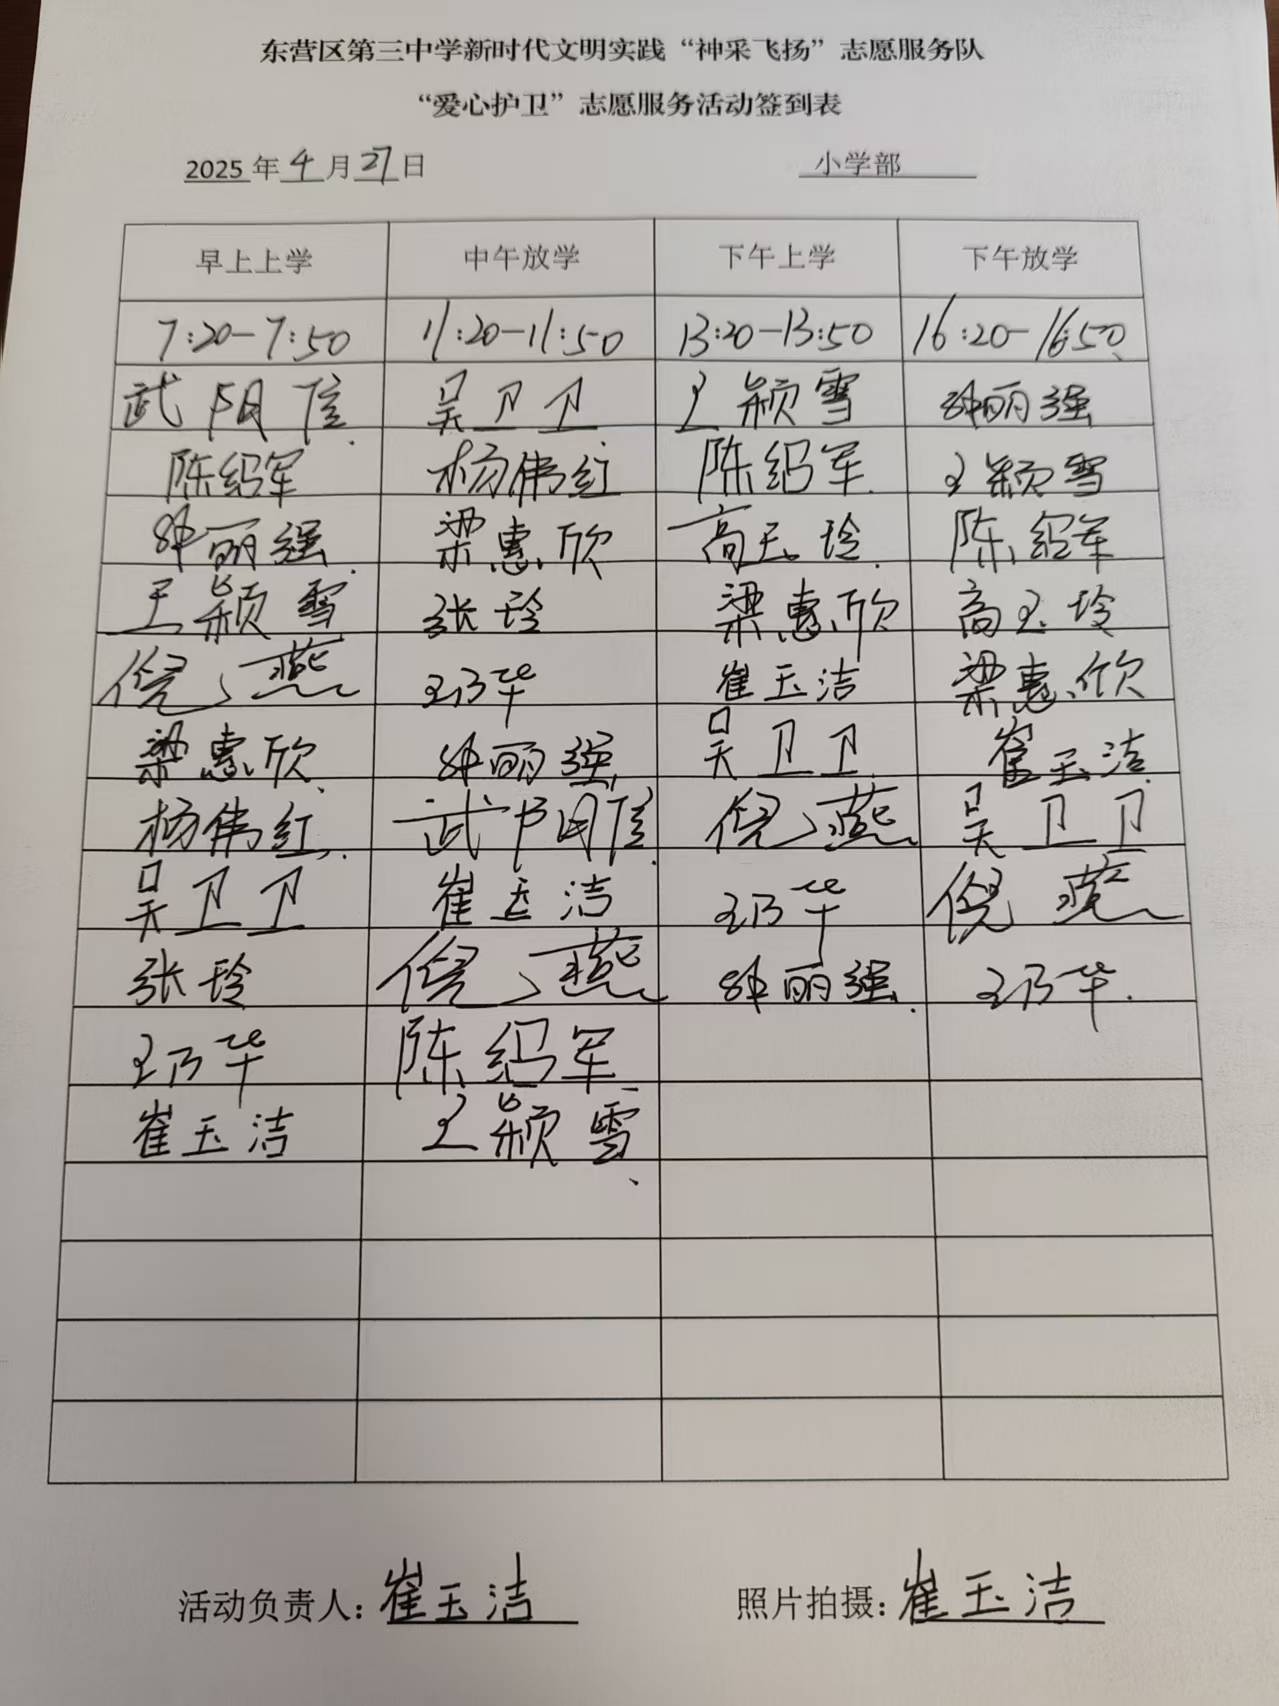 东营区第三中学新时代文明实践“神采飞扬”志愿服务队
“爱心护卫”志愿服务活动签到表
2025 年 4 月 27 日 小学部
早上上学 中午放学 下午上学 下午放学
7:20-7:50 11:20-11:50 13:20-13:50 16:20-16:50
武阴信 吴卫卫 王颖雪 钟丽强
陈绍军 杨伟红 陈绍军 王颖雪
钟丽强 梁惠欣 高玉玲 陈绍军
王颖雪 张玲 梁惠欣 高玉玲
倪燕 王乃华 崔玉洁 梁惠欣
梁惠欣 钟丽强 吴卫卫 崔玉洁
杨伟红 武阴信 倪燕 吴卫卫
吴卫卫 崔玉洁 王乃华 倪燕
张玲 倪燕 钟丽强 王乃华
王乃华 陈绍军
崔玉洁 王颖雪
活动负责人：崔玉洁 照片拍摄：崔玉洁